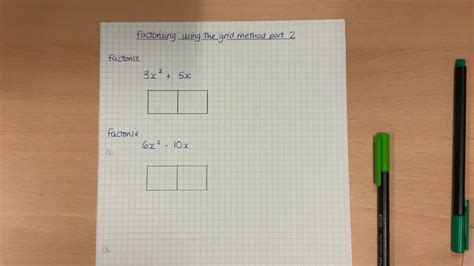 Factorising using the grid method part 2
Factorise
3x² + 5x
Factorise
6x² - 10x